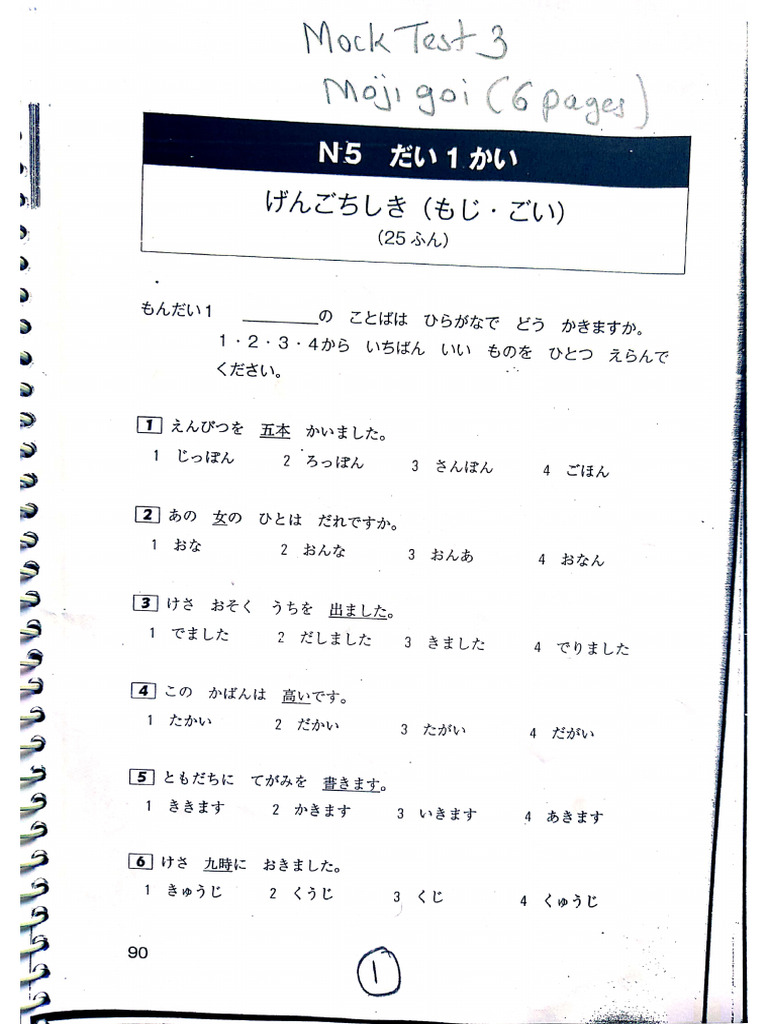 Mock Test 3
Moji goi (6 pages)
N5 だい1かい
げんごちしき（もじ・ごい）
（25ふん）
もんだい1 ________の ことばは ひらがなで どう かきますか。
1・2・3・4から いちばん いい ものを ひとつ えらんで
ください。
1 えんぴつを 五本 かいました。
1 じっぽん 2 ろっぽん 3 さんぼん 4 ごほん
2 あの 女の ひとは だれですか。
1 おな 2 おんな 3 おんあ 4 おなん
3 けさ おそく うちを 出ました。
1 でました 2 だしました 3 きました 4 でりました
4 この かばんは 高いです。
1 たかい 2 だかい 3 たがい 4 だがい
5 ともだちに てがみを 書きます。
1 ききます 2 かきます 3 いきます 4 あきます
6 けさ 九時に おきました。
1 きゅうじ 2 くうじ 3 くじ 4 くゅうじ
90
1